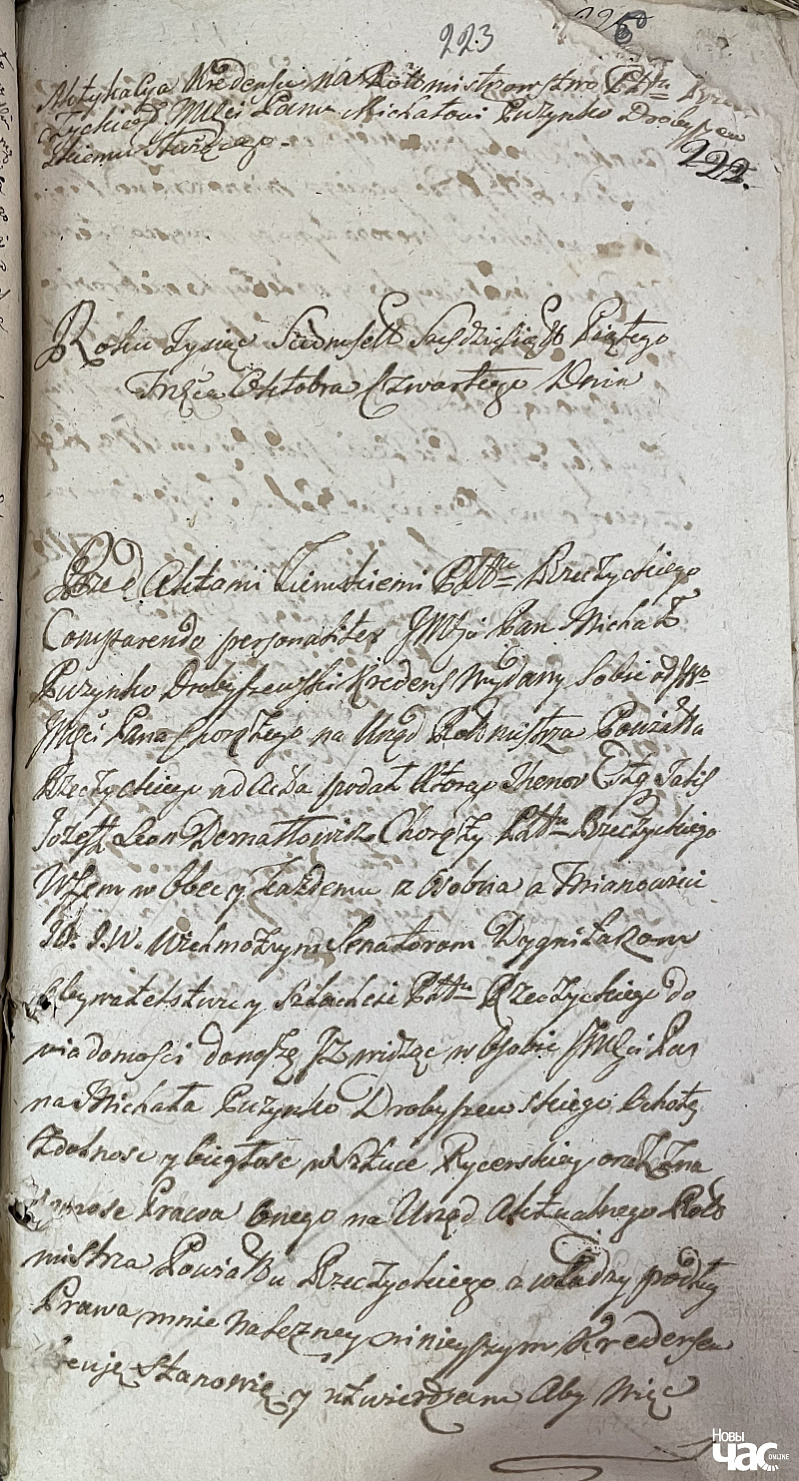 223
5
Aktykacya Kredensu na Rotmistrzowstwo Pttu Rze
czyckiego JMści Panu Michałowi Puzynko Drobyszew
skiemu służącego.
222.
Roku Tysiąc Siedmset Piątego
Msca Oktobra Czwartego Dnia
Przed Aktami Ziemskiemi Pttu Rzeczyckiego
Comparendo personaliter JMść Pan Michał
Puzynko Drobyszewski Kredens Wydany Sobie od
JMści Pana Chorążego na Urząd Rotmistrza Powiatu
Rzeczyckiego ad Acta podał którego Thenor Est Talis
Jozeff Leon Chorąży Pttu Rzeczyckiego
Wszem w Obec y każdemu z Osobna a Mianowicie
J.W. Wielmożnym Senatorom Dygnitarzom
Obywatelstwu y Szlachcie Pttu Rzeczyckiego do
wiadomości donoszę Iż widząc w Osobie JMści Pa
na Michała Puzynko Drobyszewskiego Ochotę
Zdolność y biegłość w Sztuce Rycerskiey oraz Zna
jomość Prawa Onego na Urząd Aktualnego Rot
mistrza Powiatu Rzeczyckiego z władzy podług
Prawa mnie Należney ninieyszym Kredensem
Stanowię y utwierdzam Aby Więc
Новы
Час
ONLINE